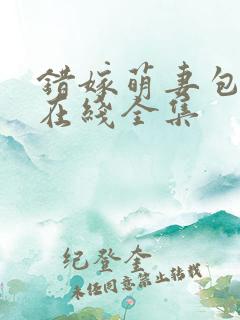 错嫁萌妻包
在线全集
纪登奎
未经同意禁止转载